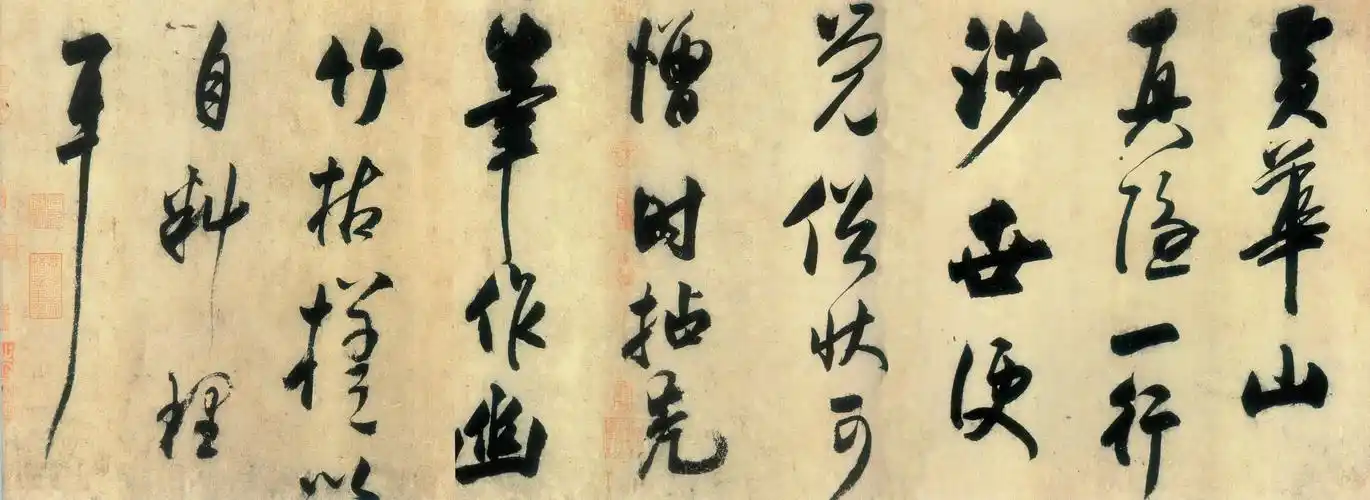 黄華山
真隐一行
涉世便
覺俗状可
憎时拈禿
筆作幽
竹枯槎以
自料理
耳